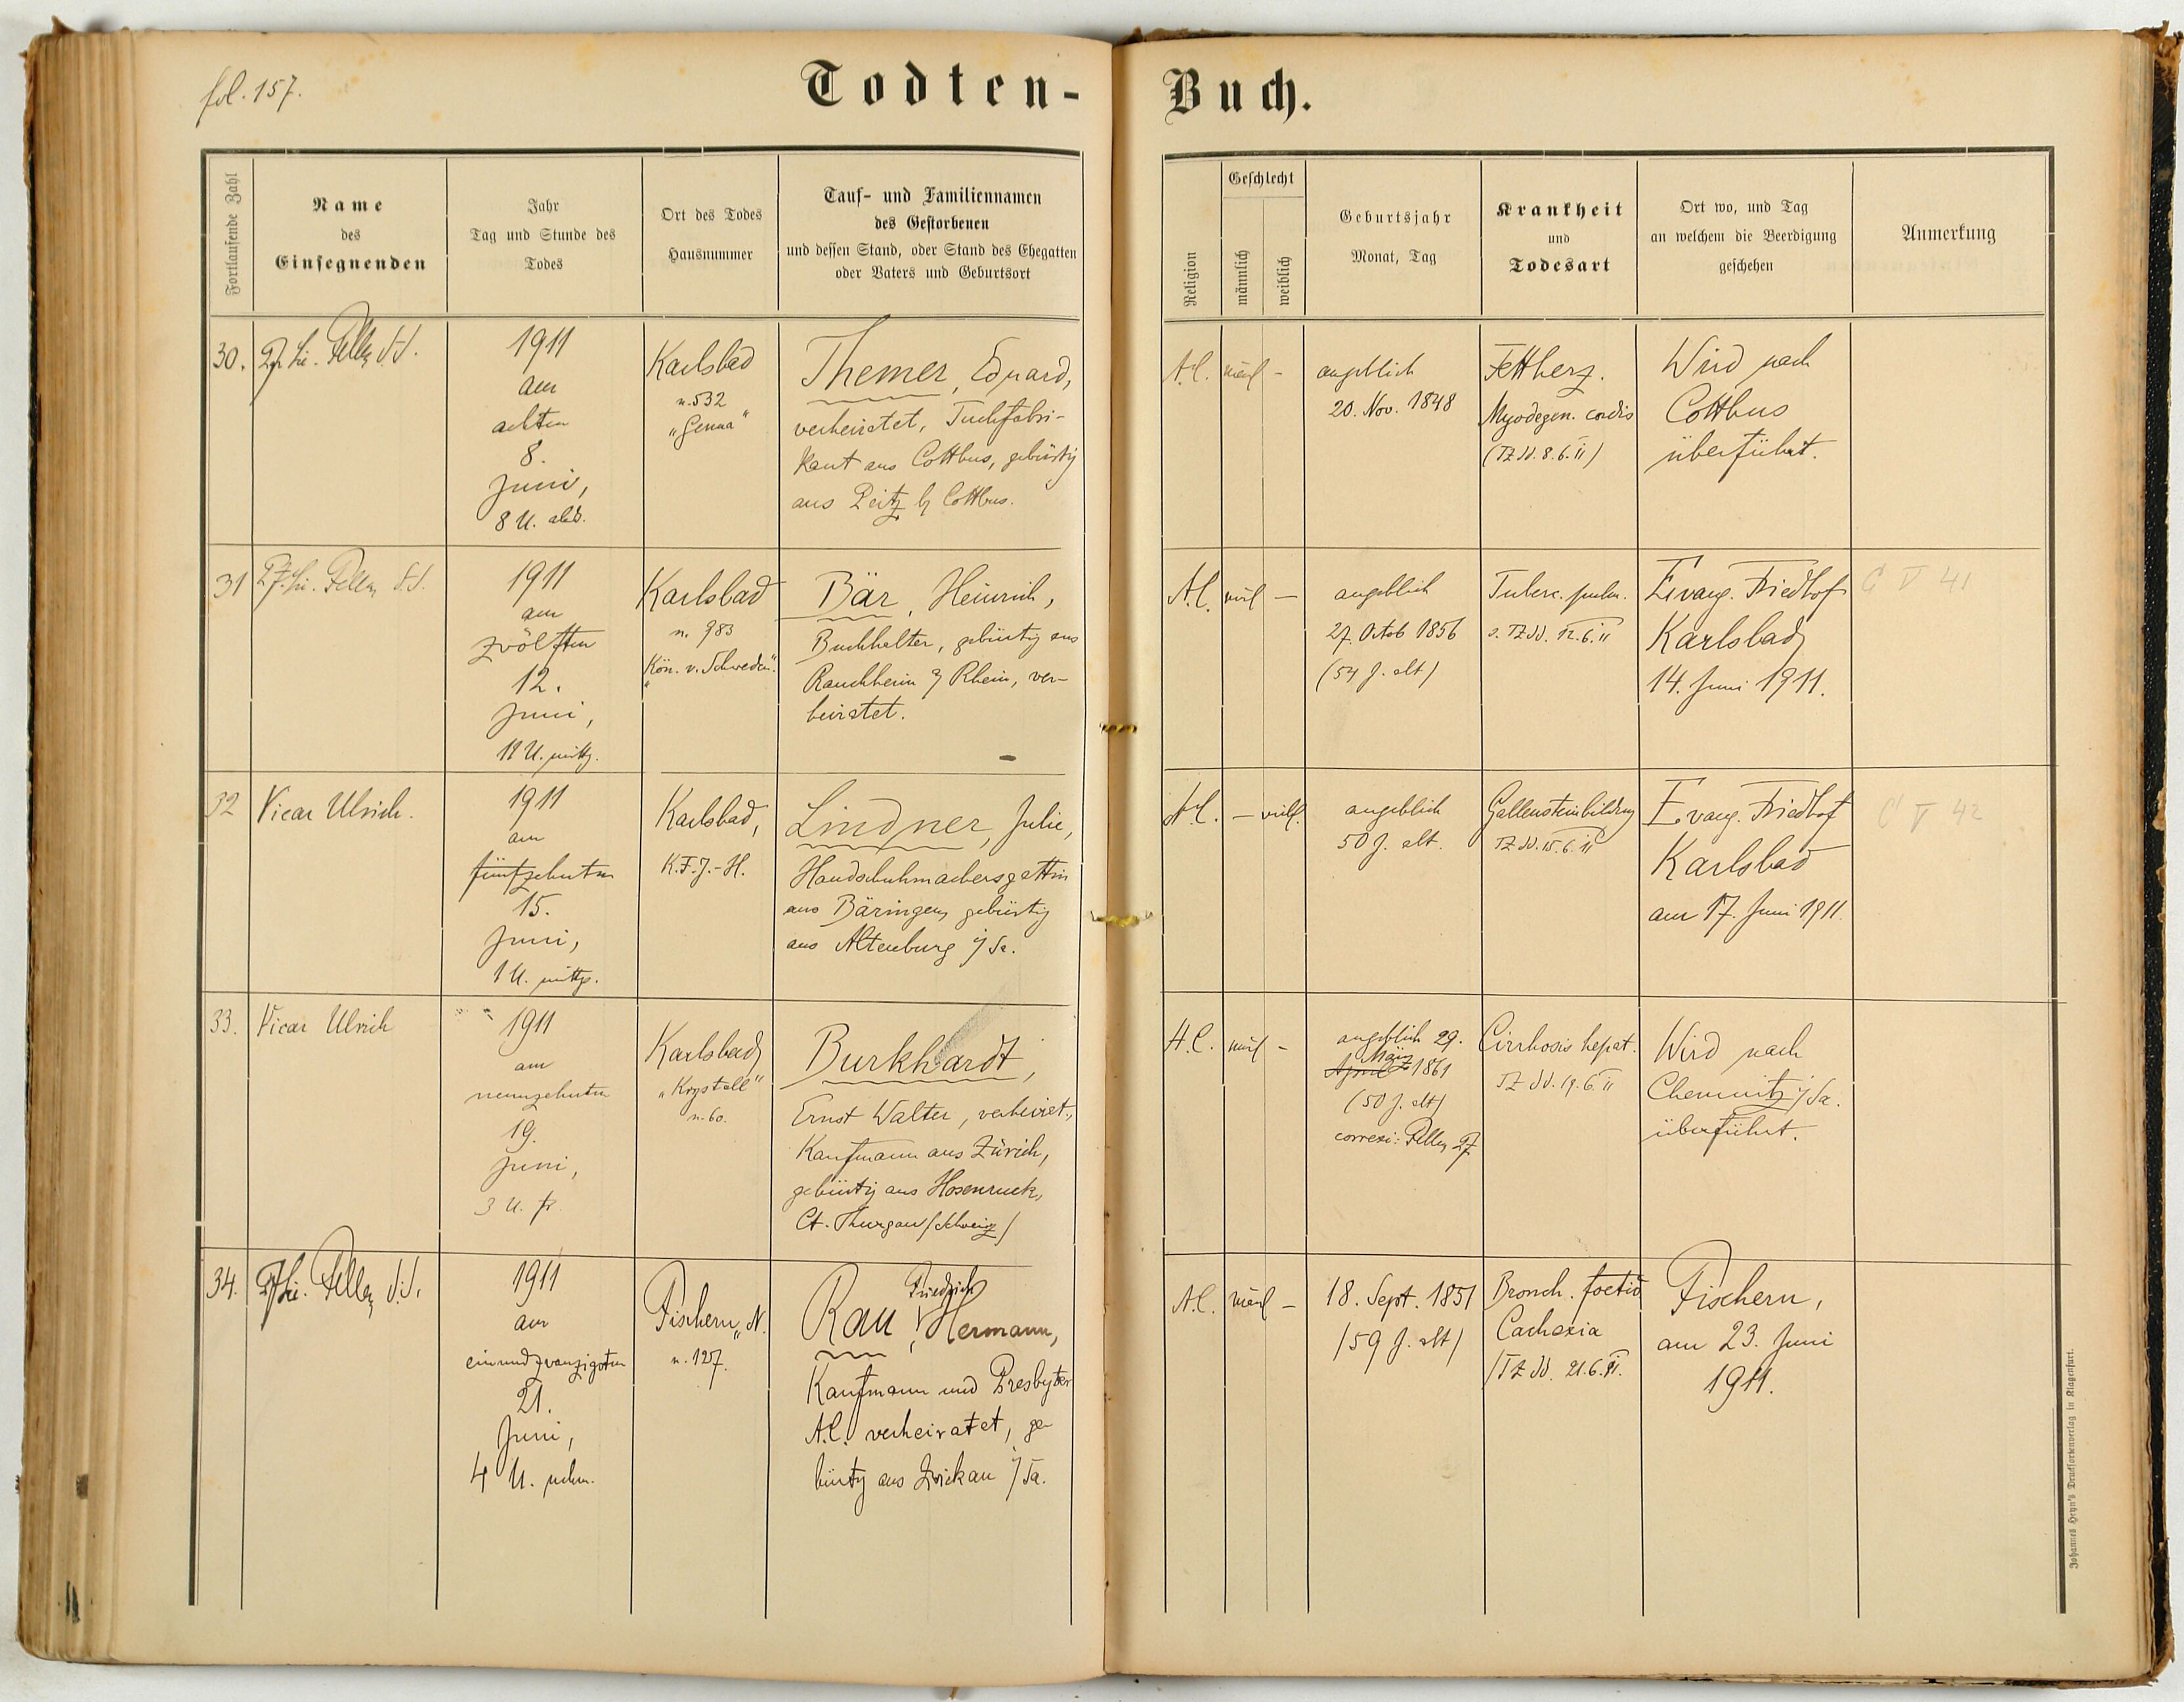 fol. 157.
Todten-Buch.
Fortlaufende Zahl
Name
des
Einsegnenden
Jahr
Tag und Stunde des
Todes
Ort des Todes
Hausnummer
Tauf- und Familiennamen
des Gestorbenen
und dessen Stand, oder Stand des Ehegatten
oder Vaters und Geburtsort
Religion
Geschlecht
männlich
weiblich
Geburtsjahr
Monat, Tag
Krankheit
und
Todesart
Ort wo, und Tag
an welchem die Beerdigung
geschehen
Anmerkung
30.
Feller
1911
am
achten
8.
Juni,
8 U. abds.
Karlsbad
n. 532
Themer, Eduard,
verheiratet, Tuchfabri-
kant aus Cottbus, gebürtig
aus Peitz b/ Cottbus.
A.C.
männl
-
angeblich
20. Nov. 1848
Fettherz.
Myodegen. cordis
(TZ dd. 8. 6. 11)
Wird nach
Cottbus
überführt.
31
Feller
1911
am
zwölften
12.
Juni,
U. mittg.
Karlsbad
n. 983
"Kön. v. Schweden".
Bär, Heinrich,
Buchhalter, gebürtig aus
Rhein, ver-
heiratet.
A.C.
männl
-
angeblich
27. Octob 1856
(54 J. alt)
Tuberc. pulm.
s. TZ dd. 12. 6. 11
Evang. Friedhof
Karlsbad
14. Juni 1911.
C V 41
32
Vicar Ulrich.
1911
am
fünfzehnten
15.
Juni,
1 U. mittgs.
Karlsbad,
K.F.J.-H.
Lindner, Julie,
Handschuhmachersgattin
aus Bäringen, gebürtig
aus Altenburg i/ Sa.
A.C.
-
weibl.
angeblich
50 J. alt.
Gallensteinbildung
TZ dd. 15. 6. 11
Evang. Friedhof
Karlsbad
am 17. Juni 1911.
C V 42
33.
Vicar Ulrich
1911
am
neunzehnten
19.
Juni,
3 U. fr
Karlsbad
"Krystall"
n. 60.
Burkhardt,
Ernst Walter, verheirat.,
Kaufmann aus Zürich,
gebürtig aus Hosenruck,
Ct. Thurgau (Schweiz)
A.C.
männl
-
angeblich 29.
März
April 1861
(50 J. alt)
correxi: Feller
Cirrhosis hepat.
TZ dd. 19. 6. 11
Wird nach
Chemnitz i/Sa.
überführt.
34.
Feller
1911
am
einundzwanzigsten
21.
Juni,
4 U. nchm.
Fischern, N.
n. 127.
Friedrich
Rau, Hermann,
Kaufmann und Presbyter
A.C. verheiratet, ge
bürtig aus Zwickau i/Sa.
A.C.
männl
-
18. Sept. 1851
(59 J. alt)
Bronch. foetid
Cachexia
(TZ dd. 21. 6. 11.
Fischern,
am 23. Juni
1911.
Johannes Heyn's Drucksortenverlag in Klagenfurt.